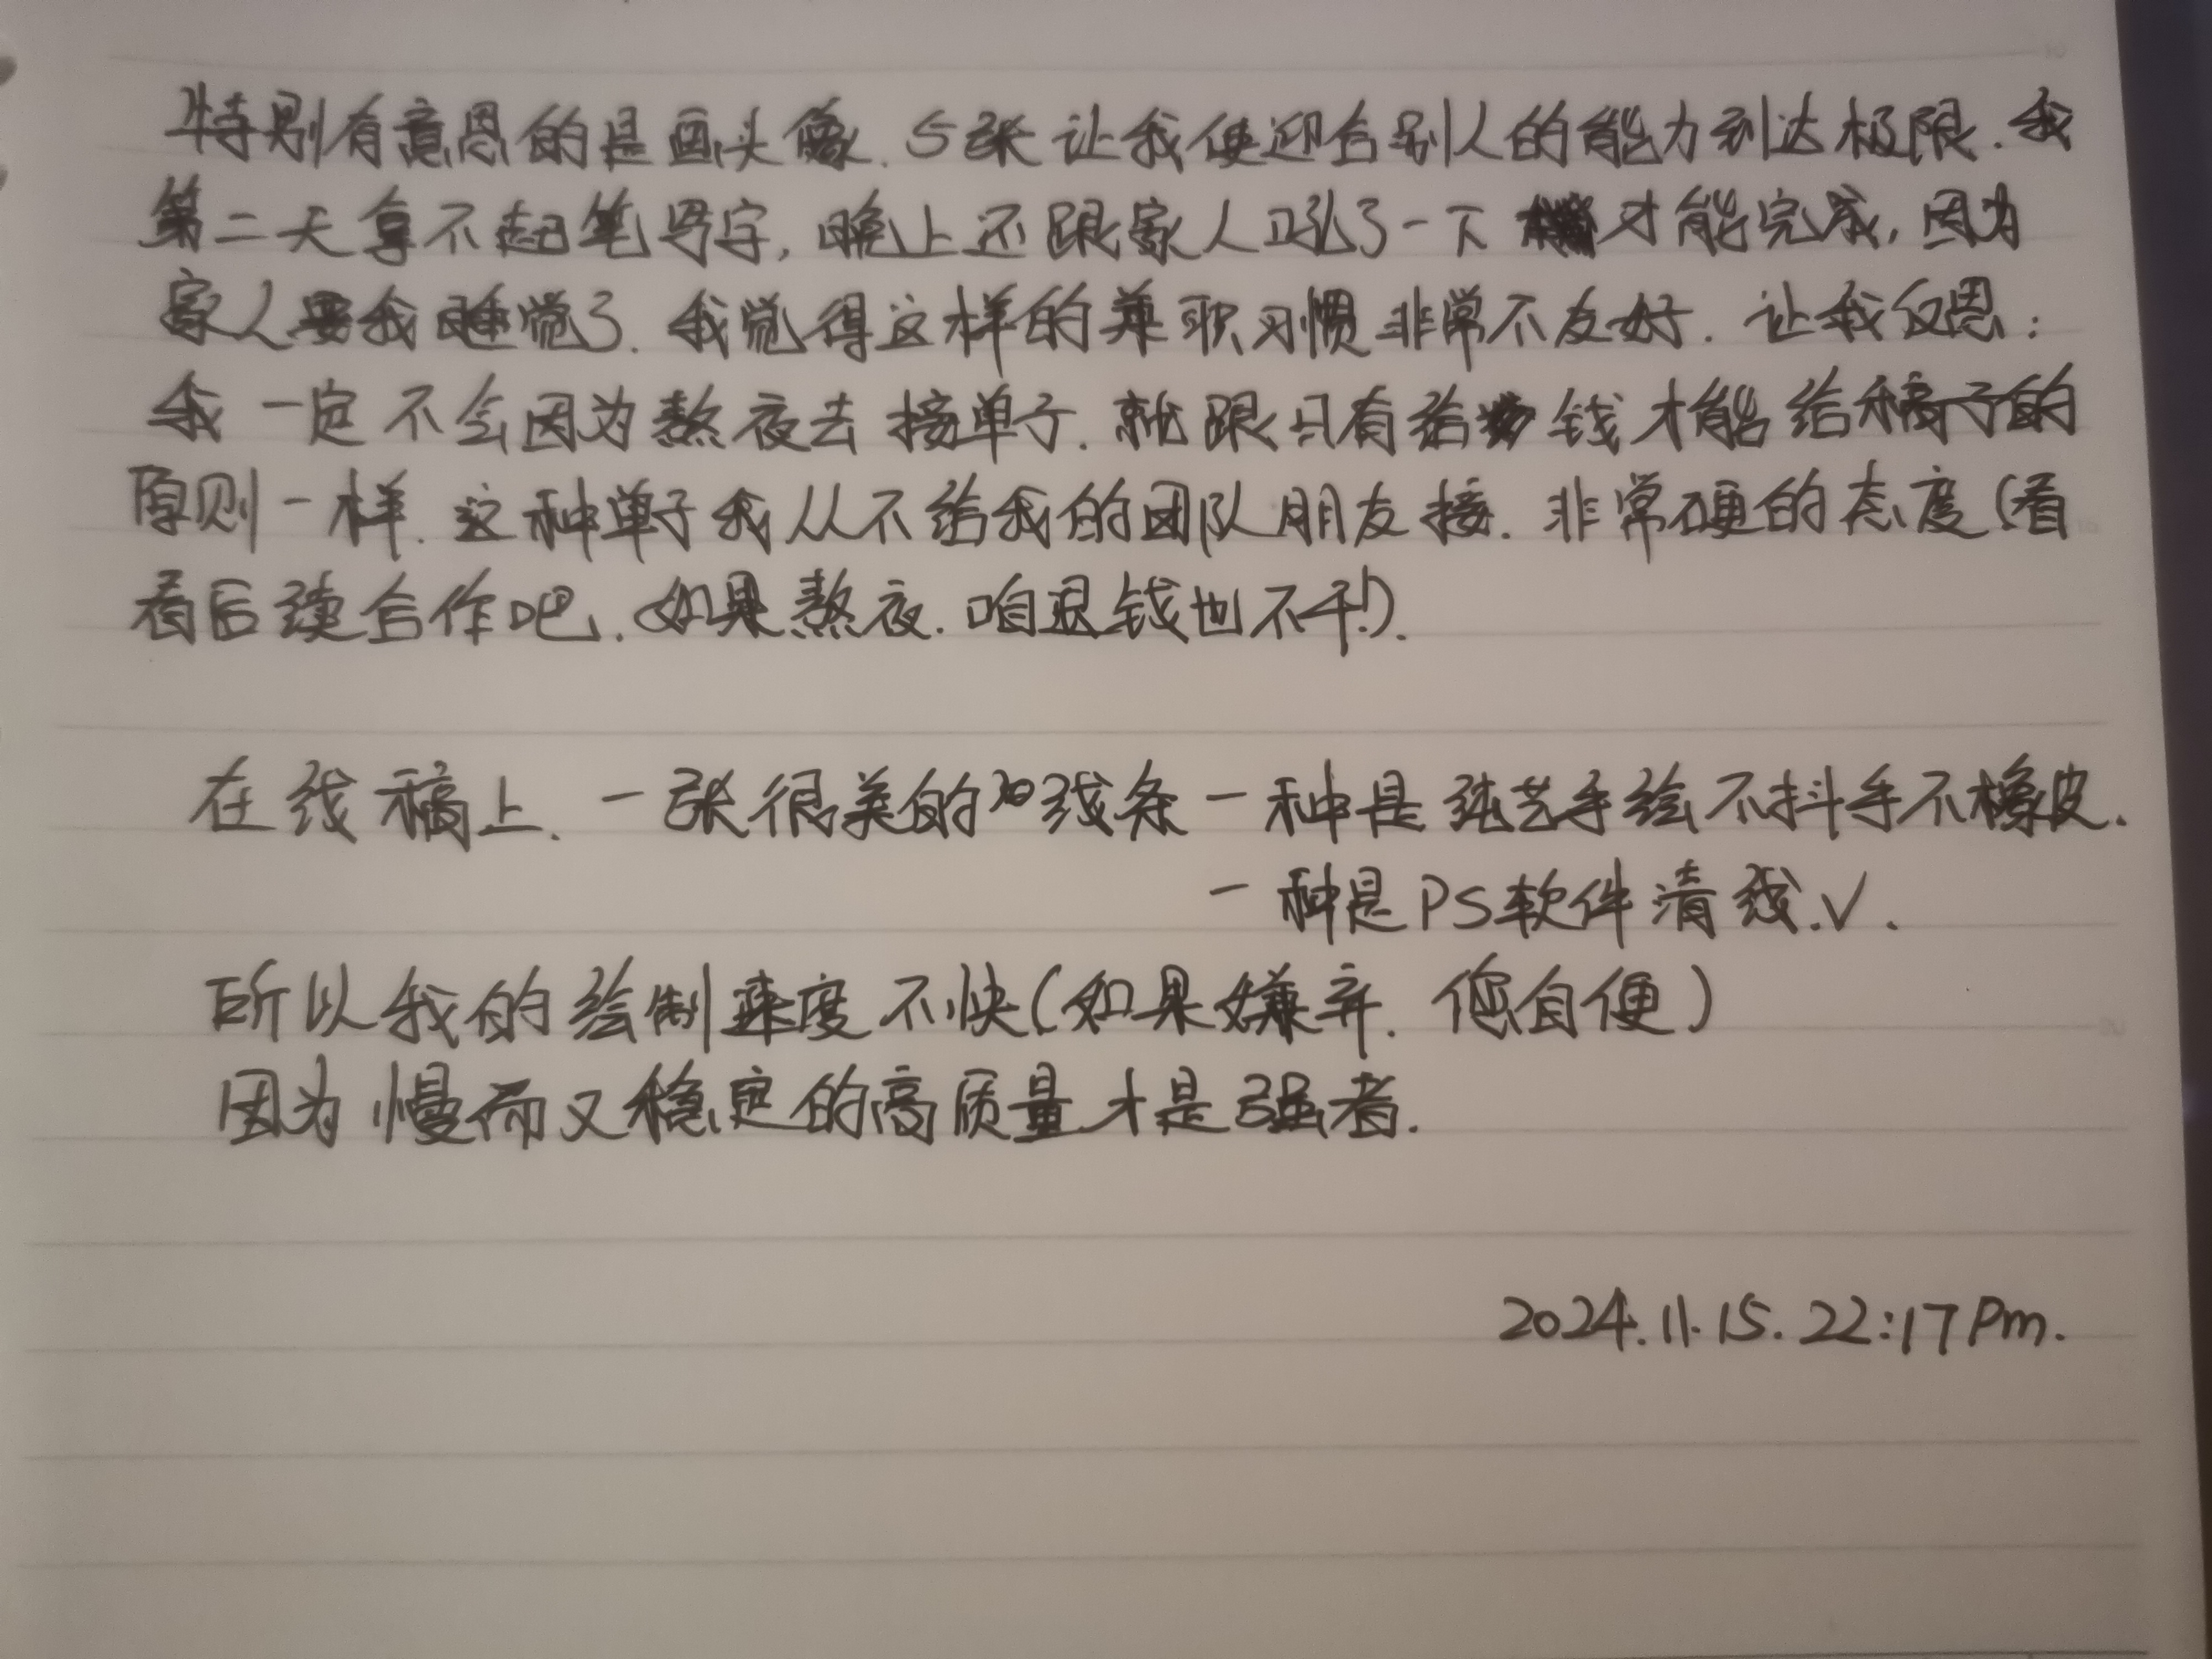 特别有意思的是画头像.5张让我使迎合别人的能力到达极限.我
第二天拿不起笔写字,晚上还跟家人吼了一下才能完成,因为
家人要我睡觉了.我觉得这样的兼职习惯非常不友好.让我反思:
我一定不会因为熬夜去接单子.就跟只有给钱才能给稿子的
原则一样.这种单子我从不给我的团队朋友接.非常硬的态度(看
看后续合作吧.如果熬夜.咱退钱也不干!).
在线稿上.一张很美的线条一种是纯艺手绘不抖手不橡皮.
一种是PS软件清线.√.
所以我的绘制速度不快(如果嫌弃.您自便)
因为慢而又稳定的高质量才是强者.
2024.11.15.22:17Pm.